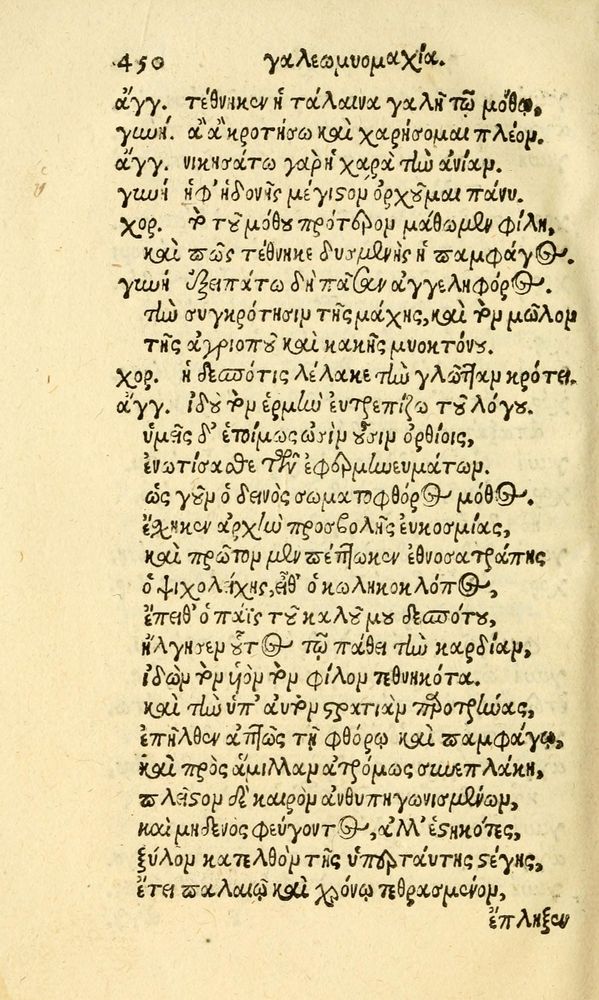 450 γαλεωμυομαχία.
ἄγγ. τέθνηκεν ἡ τάλαινα γαλῆ τῷ μόθῳ,
γυνή. ἂ ἂ κροτήσω καὶ χαρήσομαι πλέον.
ἄγγ. νικησάτω γὰρ ἡ χαρὰ τὴν ἀνίαν.
γυνή ἡφ' ἡδονῆς μέγιστον ὀρχοῦμαι πάνυ.
χορ. τὸ τοῦ μόθου πρότερον μάθωμεν φίλη,
καὶ πῶς τέθνηκε δυσμενὴς ἡ παμφάγος.
γυνή ἐξειπάτω δὴ πᾶσαν ἀγγεληφόρος.
τὴν συγκρότησιν τῆς μάχης, καὶ τὸν μῶλον
τῆς ἀγριοποῦ καὶ κακῆς μυοκτόνου.
χορ. ἡ δεσπότις λέλακε τὴν γλῶτταν κρότει.
ἄγγ. ἰδοὺ τὸν ἑρμῆν εὐτρεπίζω τοῦ λόγου.
ὑμεῖς δ' ἑτοίμως ὠσὶν οὖσιν ὀρθίοις,
ἐνωτίσασθε τῶν ἐφερμηνευμάτων.
ὡς γοῦν ὁ δεινὸς σωματοφθόρος μόθος.
ἔληκεν ἀρχὴν προσβολῆς εὐκοσμίας,
καὶ πρῶτον μὲν πέπτωκεν ἐθνοσατράπης
ὁ ψιχολείχης, εἶθ' ὁ κωληκοκλόπος,
ἔπειθ' ὁ παῖς τοῦ καλοῦ μου δεσπότου,
ἤλγησεν οὗτος τῷ πάθει τὴν καρδίαν,
ἰδὼν τὸν υἱὸν τὸν φίλον τεθνηκότα.
καὶ τὴν ὑπ' αὐτὸν στρατιὰν προτρύνας,
ἐπῆλθεν ἀπτῶς τῇ φθόρῳ καὶ παμφάγῳ,
καὶ πρὸς ἅμιλλαν ἀτρόμως συνεπλάκη,
πλεῖστον δὲ καιρὸν ἀνθυπηγωνισμένων,
καὶ μηδενὸς φεύγοντος, ἀλλ' ἑστηκότες,
ξύλον κατελθὸν τῆς ὑπερταύτης στέγης,
ἔτει παλαιῷ καὶ χρόνῳ τεθρασμένον,
ἔπληξεν